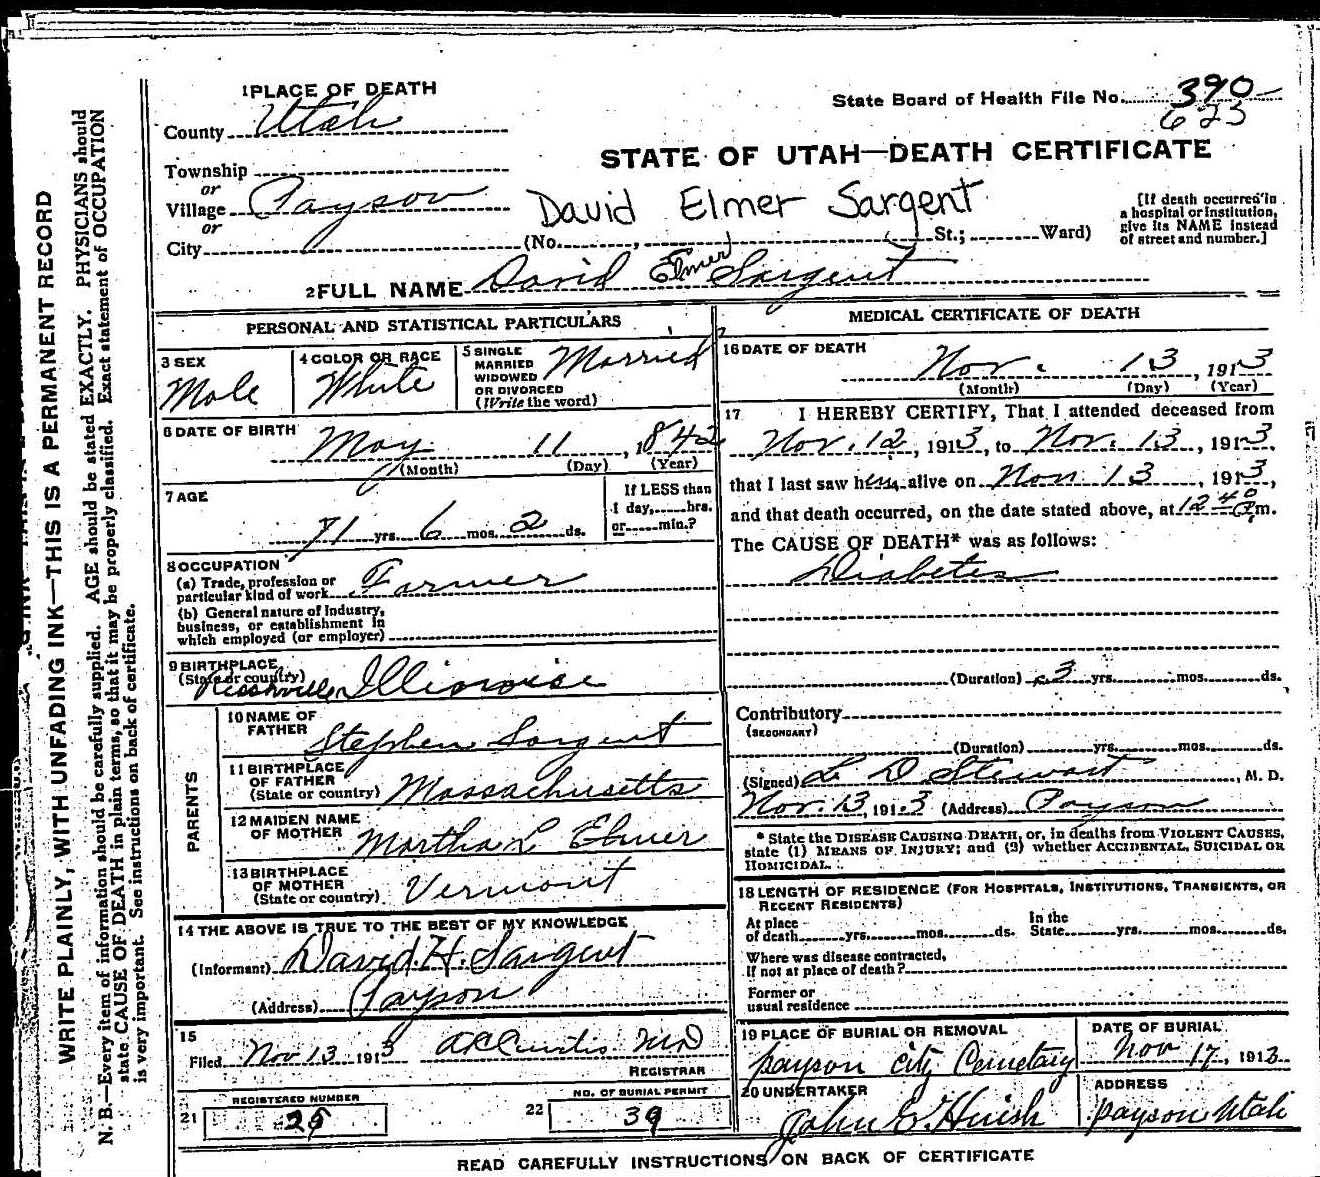 1 PLACE OF DEATH
County Utah
State Board of Health File No. 390
623
STATE OF UTAH—DEATH CERTIFICATE
Township
or
Village Payson
or
City
David Elmer Sargent
(No. , St.; Ward)
[If death occurred in
a hospital or institution,
give its NAME instead
of street and number.]
2 FULL NAME David Elmer Sargent
PERSONAL AND STATISTICAL PARTICULARS
3 SEX
Male
4 COLOR OR RACE
White
5 SINGLE
MARRIED
WIDOWED
OR DIVORCED
(Write the word)
Married
6 DATE OF BIRTH
May 11, 1842
(Month) (Day) (Year)
7 AGE
71 yrs. 6 mos. 2 ds.
If LESS than
1 day, hrs.
or min.?
8 OCCUPATION
(a) Trade, profession or
particular kind of work Farmer
(b) General nature of Industry,
business, or establishment in
which employed (or employer)
9 BIRTHPLACE
(State or country)
Illinoise
PARENTS
10 NAME OF
FATHER Stephen Sargent
11 BIRTHPLACE
OF FATHER
(State or country) Massachusetts
12 MAIDEN NAME
OF MOTHER Martha L Elmer
13 BIRTHPLACE
OF MOTHER
(State or country) Vermont
14 THE ABOVE IS TRUE TO THE BEST OF MY KNOWLEDGE
(Informant) David H. Sargent
(Address) Payson
15
Filed Nov 13 1913 A C Curtis MD
REGISTRAR
21 REGISTERED NUMBER
25
22 NO. OF BURIAL PERMIT
39
MEDICAL CERTIFICATE OF DEATH
16 DATE OF DEATH
Nov. 13, 1913
(Month) (Day) (Year)
17 I HEREBY CERTIFY, That I attended deceased from
Nov. 12, 1913, to Nov. 13, 1913,
that I last saw him alive on Nov 13, 1913,
and that death occurred, on the date stated above, at 12 40 a.m.
The CAUSE OF DEATH* was as follows:
Diabetes
(Duration) 3 yrs. mos. ds.
Contributory
(SECONDARY)
(Duration) yrs. mos. ds.
(Signed) L D Stewart, M. D.
Nov. 13, 1913 (Address) Payson
* State the DISEASE CAUSING DEATH, or, in deaths from VIOLENT CAUSES,
state (1) MEANS OF INJURY; and (2) whether ACCIDENTAL, SUICIDAL OR
HOMICIDAL.
18 LENGTH OF RESIDENCE (FOR HOSPITALS, INSTITUTIONS, TRANSIENTS, OR
RECENT RESIDENTS)
At place
of death yrs. mos. ds.
In the
State yrs. mos. ds.
Where was disease contracted,
if not at place of death?
Former or
usual residence
19 PLACE OF BURIAL OR REMOVAL
Payson City Cemetary
DATE OF BURIAL
Nov 17, 1913
20 UNDERTAKER
John E. Huish
ADDRESS
Payson Utah
READ CAREFULLY INSTRUCTIONS ON BACK OF CERTIFICATE
WRITE PLAINLY, WITH UNFADING INK—THIS IS A PERMANENT RECORD
N. B.—Every item of information should be carefully supplied. AGE should be stated EXACTLY. PHYSICIANS should
state CAUSE OF DEATH in plain terms, so that it may be properly classified. Exact statement of OCCUPATION
is very important. See instructions on back of certificate.